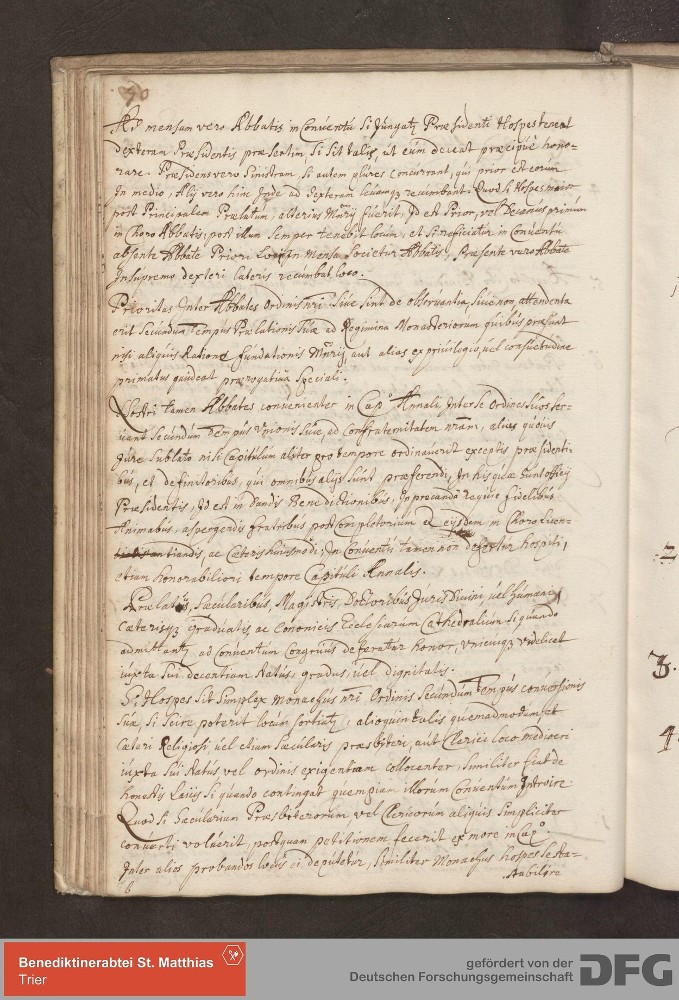 70
Ad mensam vero Abbatis in Conventu si jungatr Præsidenti Hospes teneat
dexteram Præsidentis præsertim, si sit talis, ut eum deceat præcipuè hono-
rare. Præsidens vero sinistram, si autem plures concurrant, qui prior est eorum
in medio, alij vero hinc inde ad dexteram lævamqz recumbant. Quod si Hospes maior
post Principalem Prælatum, alterius Mrÿ fuerit, Id est Prior, vel Decanus primum
in Choro Abbatis, post illum semper tenebit locum, et si reficiatur in Conventu
absente Abbate Priori Loci in mensa societur Abbatis, Præsente vero Abbate
in supremo dexteri lateris recumbat loco.
Prioritas inter Abbates Ordinis nri sive sint de observantia, sive non, attendenta
erit secundum Tempus Prælationis suæ ad Regimina Monasteriorum quibus præsunt
nisi aliquis Ratione fundationis Mrÿ, aut alias ex privilegio, vel consuetudine
primatus gaudeat prærogativa speciali.
Nostri tamen Abbates convenienter in Cap.o Annali, inter se Ordines suos ser-
vant secundum Tempus Unionis suæ, ad Confraternitatem nram, alias quovis
jure sublato nisi Capitulum aliter pro tempore ordinaverit exceptis præsidenti-
bus, et definitoribus, qui omnibus alijs sunt præferendi, in his quæ sunt officij
Præsidentis, Id est in dandis Benedictionibus, in precanda requie fidelibus
Animabus, aspergendis fratribus post Completorium et ejsdem in Choro
antiandis, ac cæteris huiusmodi; In Conventu tamen non defertur hospiti,
etiam honorabiliori tempore Capituli Annalis.
Prælatis, Sæcularibus, Magistris, Doctoribus Juris Divini vel humani
cæterisqz graduatis, ac Cononicis Ecclesiarum Cathedralium si quando
admittantr ad Conventum Congruus deferatur honor, unicuiqz videlicet
iuxta sui decentiam status, gradus, vel dignitatis.
Si Hospes sit simplex monachus nri Ordinis secundum tempus conversionis
suæ, si scire poterit locum sortiatr, alioquin talis quemadmodum et
cæteri Religiosi vel etiam sæcularis præsbiteri, aut Clerici loco mediocri
iuxta sui status vel ordinis exigentiam collocentur, similiter fiat de
honestis Laicis si quando contingat quempiam illorum Conventum Introire
Quod si sæcularium Præsbiterorum vel Clericorum aliquis simpliciter
converti voluerit, postquam petitionem fecerit ex more in Cap.o
inter alios probandos locus ei deputetur, similiter Monachus hospes se sta-
stabilire
2
3.
4.
Benediktinerabtei St. Matthias
Trier
gefördert von der
Deutschen Forschungsgemeinschaft
DFG